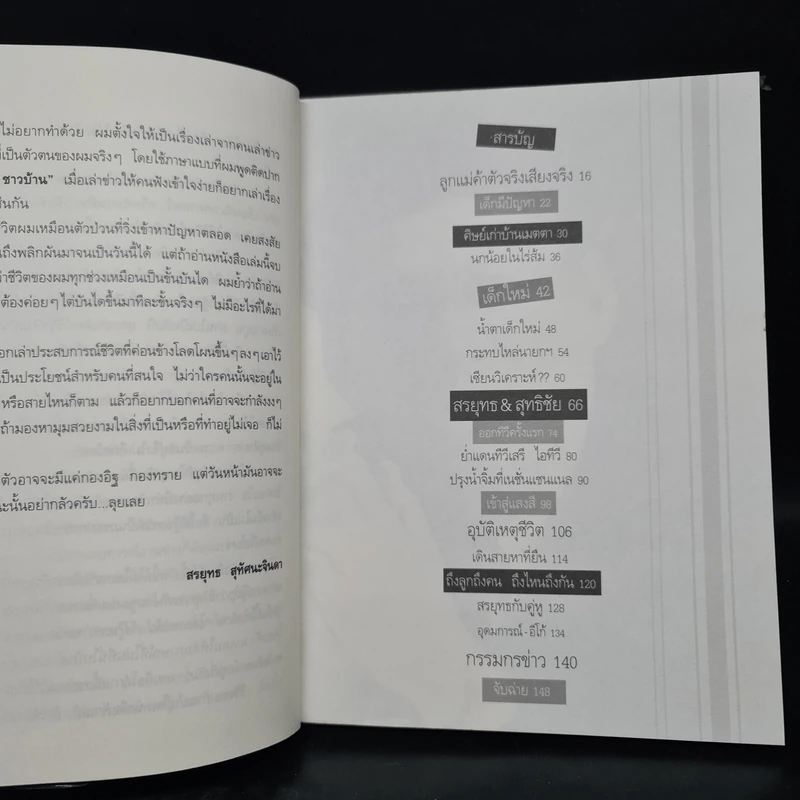 ไม่อยากทำด้วย ผมตั้งใจให้เป็นเรื่องเล่าจากคนเล่าข่าว
ที่เป็นตัวตนของผมจริงๆ โดยใช้ภาษาแบบที่ผมพูดติดปาก
ชาวบ้าน" เมื่อเล่าข่าวให้คนฟังเข้าใจง่ายก็อยากเล่าเรื่อง
ช่นกัน
ชีวิตผมเหมือนตัวป่วนที่วิ่งเข้าหาปัญหาตลอด เคยสงสัย
ถึงพลิกผันมาจนเป็นวันนี้ได้ แต่ถ้าอ่านหนังสือเล่มนี้จบ
ว่าชีวิตของผมทุกช่วงเหมือนเป็นขั้นบันได ผมย้ำว่าถ้าอ่าน
ต้องค่อยๆ ไต่บันไดขึ้นมาทีละขั้นจริงๆ ไม่มีอะไรที่ได้มา
อกเล่าประสบการณ์ชีวิตที่ค่อนข้างโลดโผนขึ้นๆ ลงๆ เอาไว้
เป็นประโยชน์สำหรับคนที่สนใจ ไม่ว่าใครคนนั้นจะอยู่ใน
หรือสายไหนก็ตาม แล้วก็อยากบอกคนที่อาจจะกำลังงงๆ
ถ้ามองหามุมสวยงามในสิ่งที่เป็นหรือที่ทำอยู่ไม่เจอ ก็ไม่
ตัวอาจจะมีแค่กองอิฐ กองทราย แต่วันหน้ามันอาจจะ
นะนั้นอย่ากลัวครับ...ลุยเลย
สรยุทธ สุทัศนะจินดา
สารบัญ
ลูกแม่ค้าตัวจริงเสียงจริง 16
เด็กมีปัญหา 22
ศิษย์เก่าบ้านเมตตา 30
นกน้อยในไร่ส้ม 36
เด็กใหม่ 42
น้ำตาเด็กใหม่ 48
กระทบไหล่นายกฯ 54
เซียนวิเคราะห์?? 60
สรยุทธ & สุทธิชัย 66
ออกทีวีครั้งแรก 74
ย่ำแดนทีวีเสรี ไอทีวี 80
ปรุงน้ำจิ้มที่เนชั่นแชนแนล 90
เข้าสู่แสงสี 98
อุบัติเหตุชีวิต 106
เดินสายหาที่ยืน 114
ถึงลูกถึงคน ถึงไหนถึงกัน 120
สรยุทธกับคู่หู 128
อุดมการณ์-อีโก้ 134
กรรมกรข่าว 140
จับฉ่าย 148